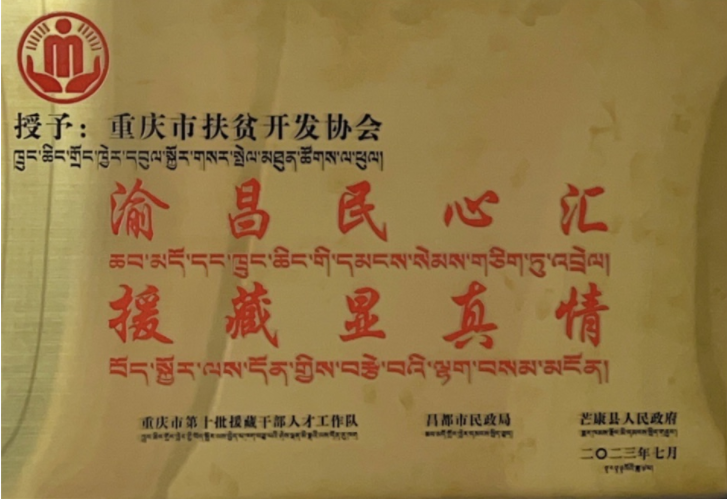 授予：重庆市扶贫开发协会
ཁྲུང་ཆིང་གྲོང་ཁྱེར་དབུལ་སྐྱོར་གསར་སྤེལ་མཐུན་ཚོགས་ལ་ཕུལ།
渝昌民心汇
ཆབ་མདོ་དང་ཁྲུང་ཆིང་གི་དམངས་སེམས་གཅིག་ཏུ་འབྲེལ།
援藏显真情
བོད་སྐྱོར་ལས་དོན་གྱིས་བརྩེ་བའི་ལྷག་བསམ་མངོན།
重庆市第十批援藏干部人才工作队 昌都市民政局 芒康县人民政府
二〇二三年七月